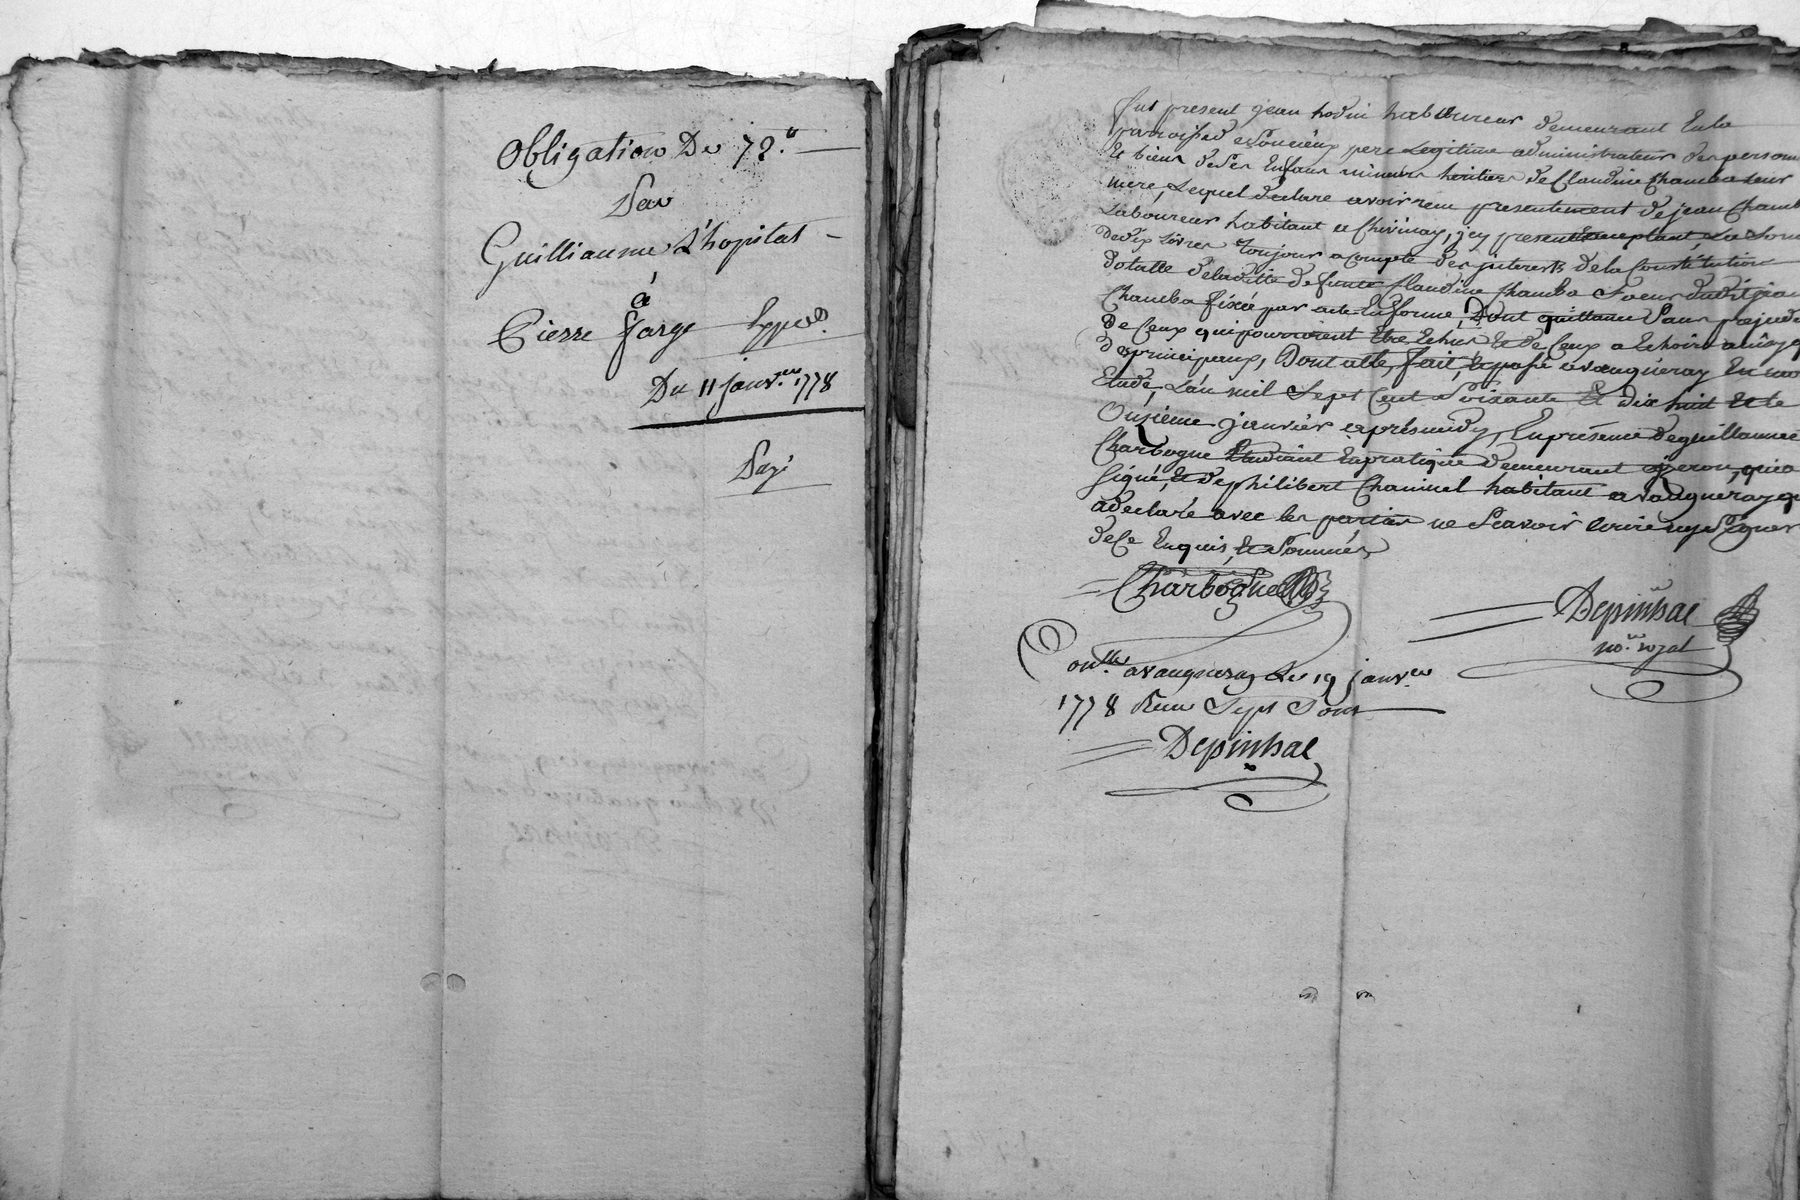 Obligation De 72.tt
Par
Guilliaume L'hopital
à
Pierre farge
Du 11 janv.er 1778
Payé
fut present jean hodin laboureur demeurant En la
parroisse de Soucieux pere Legitime administrateur des person
Et biens de Ses Enfans mineurs heritiers de Claudine Chamba leur
mere, Lequel declare avoir recu presentement de jean Chamb
Laboureur habitant a Chivinay, icy present acceptant, La Som
de dix Livres toujours a compte des interests de la Constitution
dotalle de laditte defunte Claudine Chamba Soeur dudit jean
Chamba fixée par acte En forme, Dont quittance Sans prejudi
de Ceux qui pourroient Etre Echus Et de Ceux a Echoir ainsy q
des principaux, Dont acte, fait, Et passé a vaugneray En no
Etude, L'an mil Sept Cent Soixante Et dix huit Et le
Onzieme janvier apres midy, En presence de guillaume
Charbogne Etudiant En pratique demeurant qui a
Signé, Et de philibert Chaninel habitant a vaugneray q
a declaré avec les parties ne Scavoir Ecrire ny Signer
de Ce Enquis, Et Sommés
Charbogne
Depinhac
no.re royal
Con.llé a vaugneray Le 19 janv.er
1778 Recu Sept Sous
Depinhac